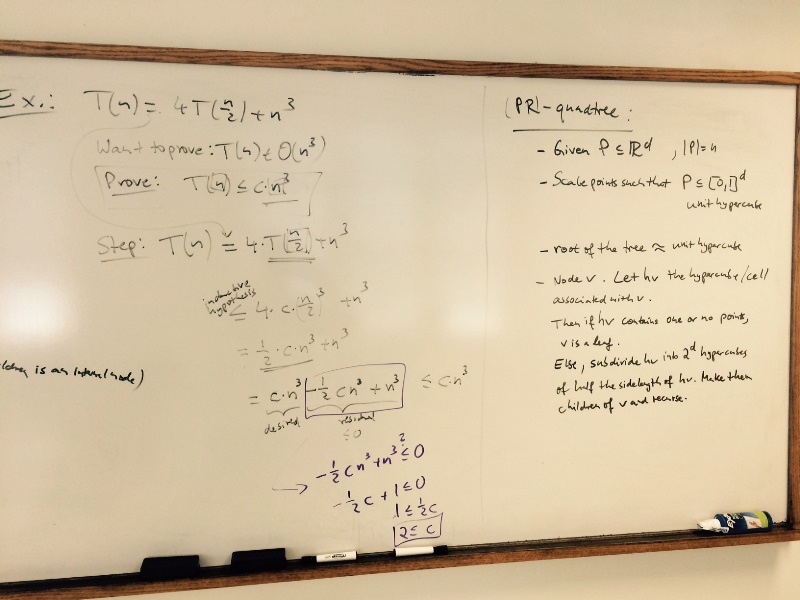 Ex.: T(n) = 4T(n/2) + n³
Want to prove: T(n) ∈ O(n³)
Prove: T(n) ≤ c·n³
Step: T(n) = 4·T(n/2) + n³
inductive
hypothesis
≤ 4·c·(n/2)³ + n³
= 1/2·c·n³ + n³
= c·n³ -1/2 cn³ + n³ ≤ c·n³
desired residual
≤0
→ -1/2 cn³ + n³ ≤? 0
-1/2 c + 1 ≤ 0
1 ≤ 1/2 c
2 ≤ c
ldren is an internal node)
(PR)-quadtree:
- Given P ⊆ ℝᵈ , |P|=n
- Scale points such that P ⊆ [0,1]ᵈ
unit hypercube
- root of the tree ≈ unit hypercube
- Node v. Let hv the hypercube/cell
associated with v.
Then if hv contains one or no points,
v is a leaf.
Else, subdivide hv into 2ᵈ hypercubes
of half the sidelength of hv. Make them
children of v and recurse.